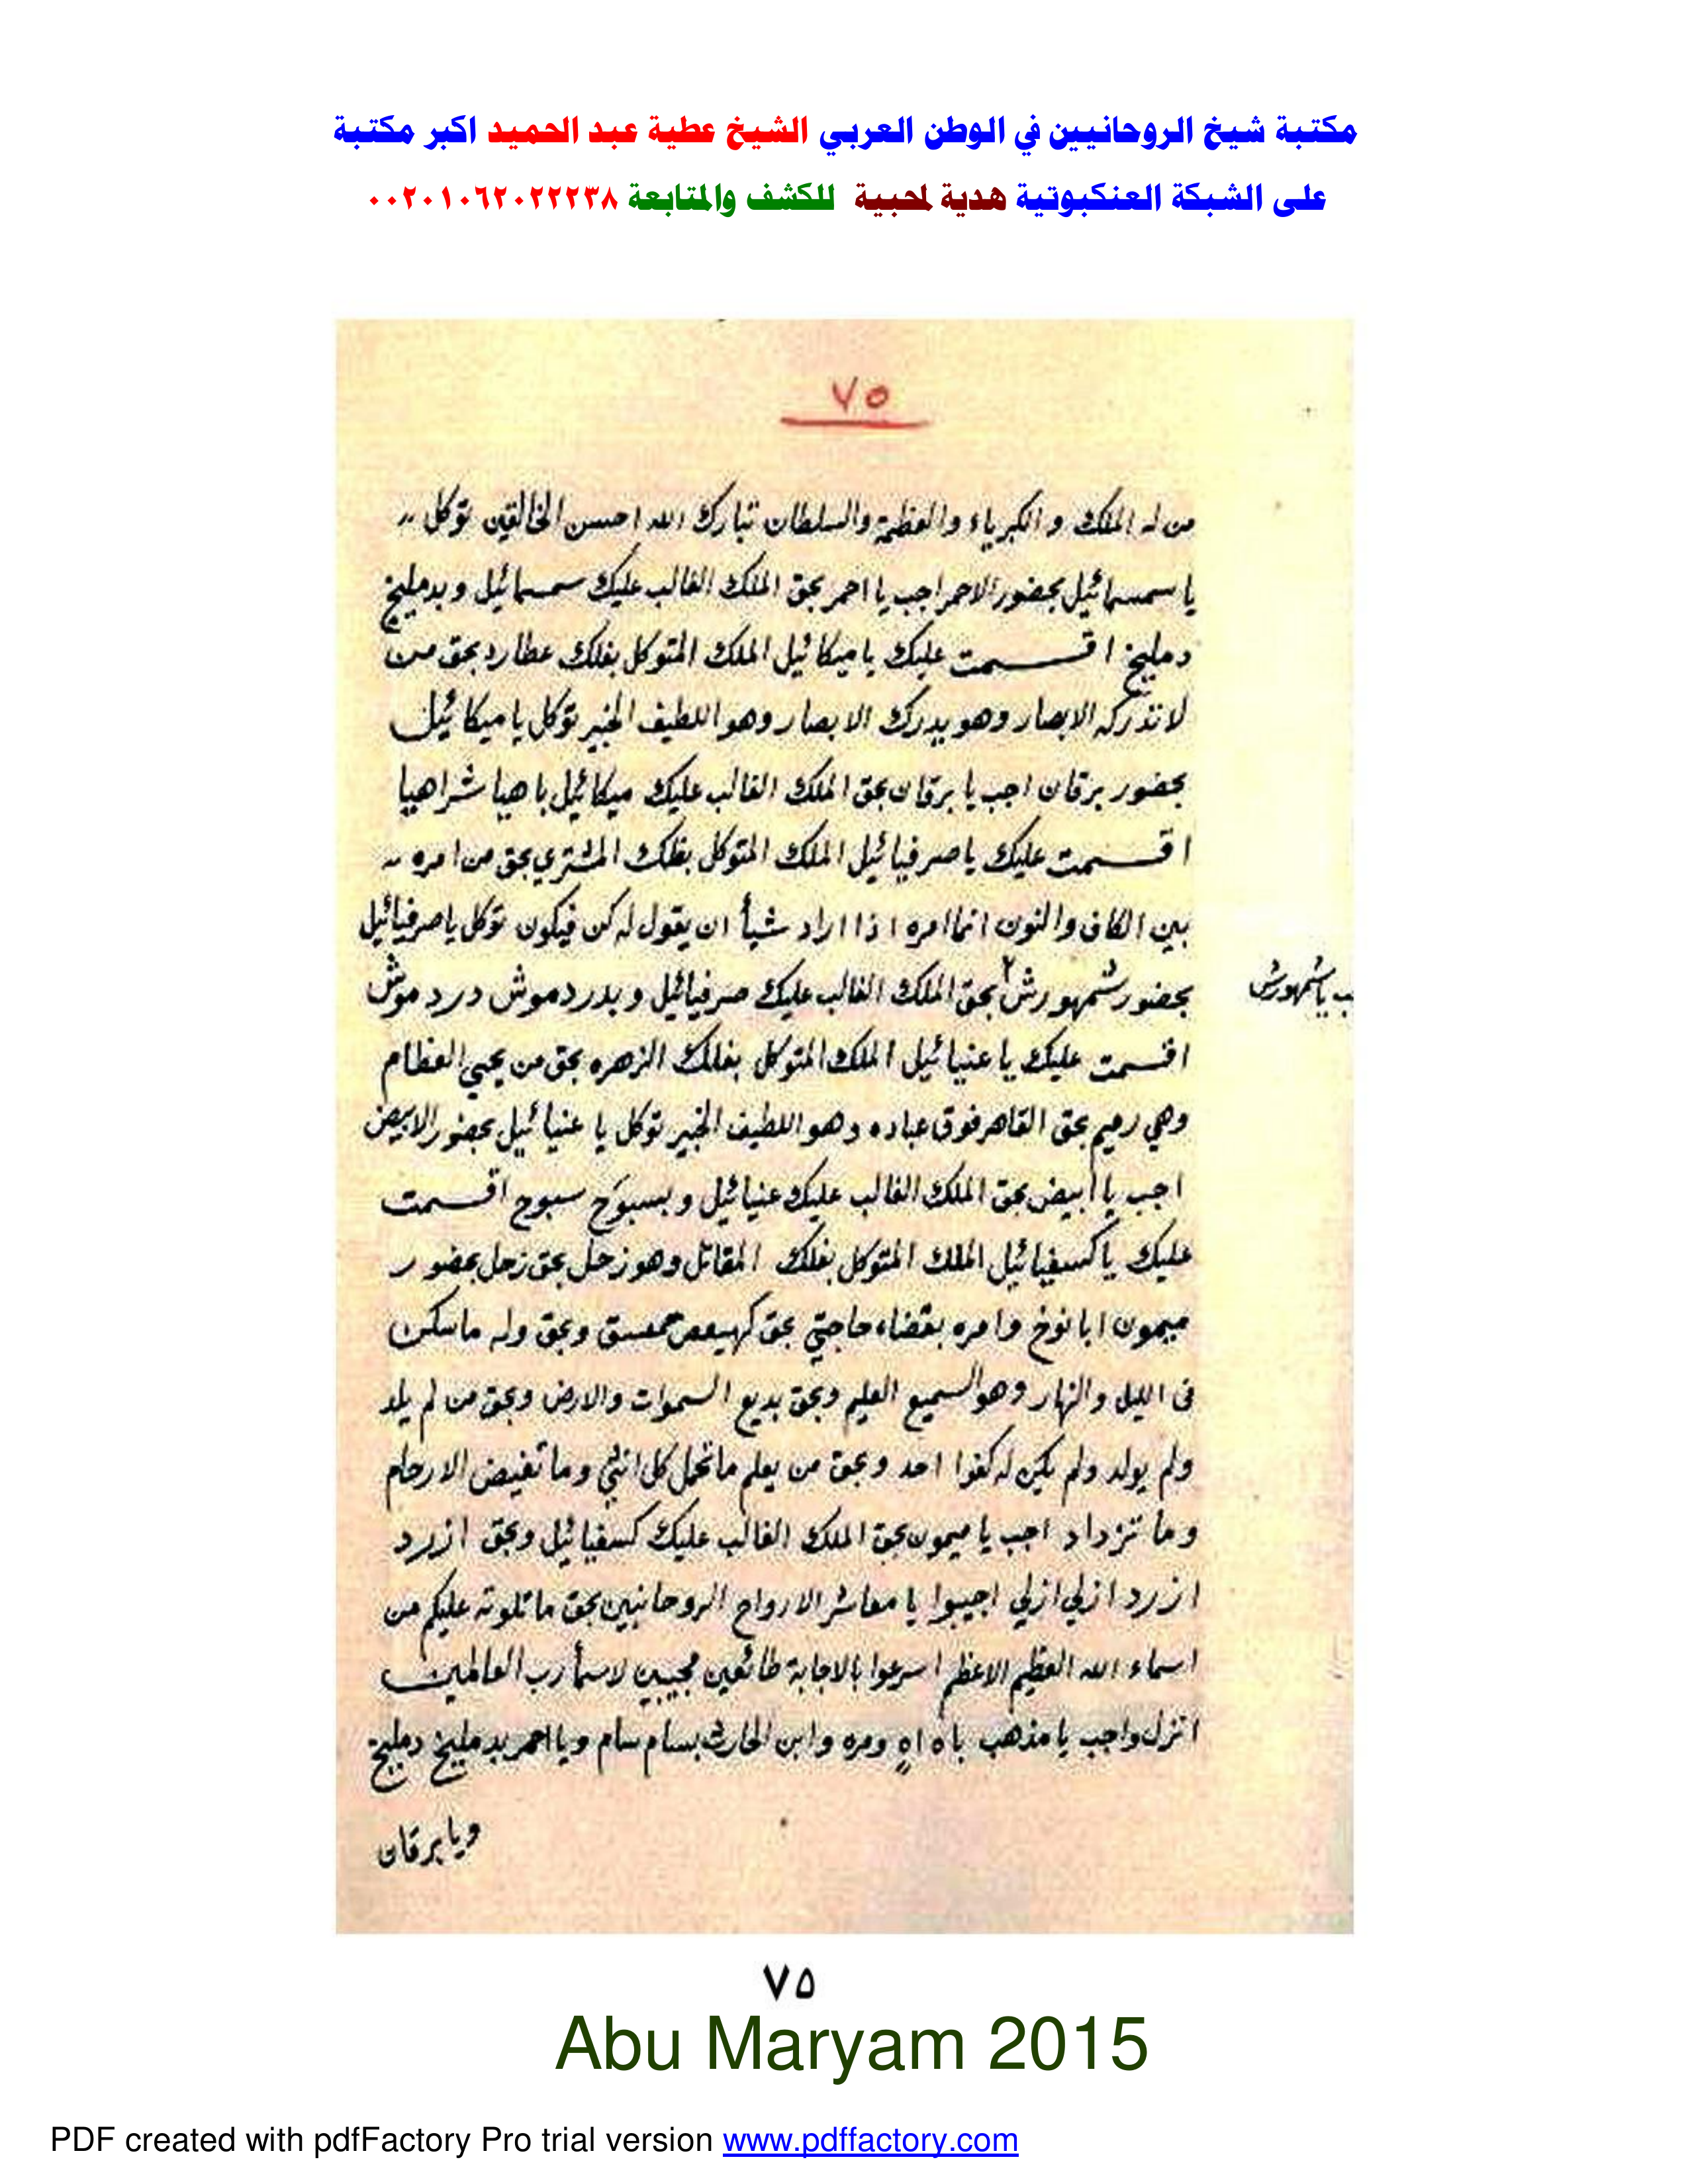 مكتبة شيخ الروحانيين في الوطن العربي الشيخ عطية عبد الحميد اكبر مكتبة
على الشبكة العنكبوتية هدية لمحبية للكشف والمتابعة ٠٠٢٠١٠٦٢٠٢٢٢٣٨
٧٥
من له الملك و الكبرياء والعظمة والسلطان تبارك الله احسن الخالقين توكل
يا سمسمائيل بحضور الاحمر اجب يا احمر بحق الملك الغالب عليك سمسمائيل و بدمليخ
دمليخ اقسمت عليك يا ميكائيل الملك المتوكل بفلك عطارد بحق من
لا تدركه الابصار وهو يدرك الابصار وهو اللطيف الخبير توكل يا ميكائيل
بحضور برقان اجب يا برقان بحق الملك الغالب عليك ميكائيل باهيا شراهيا
اقسمت عليك يا صرفيائيل الملك المتوكل بفلك المشتري بحق من امره
بين الكاف والنون انما امره اذا اراد شيأ ان يقول له كن فيكون توكل يا صرفيائيل
بحضور شمهورش ٢ بحق الملك الغالب عليك صرفيائيل و بدردموش دردموش
ب يا شمهورش
اقسمت عليك يا عنيائيل الملك المتوكل بفلك الزهره بحق من يحيي العظام
وهي رميم بحق القاهر فوق عباده وهو اللطيف الخبير توكل يا عنيائيل بحضور الابيض
اجب يا ابيض بحق الملك الغالب عليك عنيائيل و بسبوح سبوح اقسمت
عليك يا كسفيائيل الملك المتوكل بفلك المقاتل وهو زحل بحق زحل بحضور
ميمون ابا نوخ وامره بقضاء حاجتي بحق كهيعص حمعسق وبحق وله ما سكن
فى الليل والنهار وهو السميع العليم وبحق بديع السموات والارض وبحق من لم يلد
ولم يولد ولم يكن له كفوا احد وبحق من يعلم ما تحمل كل انثى وما تغيض الارحام
وما تزداد اجب يا ميمون بحق الملك الغالب عليك كسفيائيل وبحق ازرد
ازرد ازلي ازلي اجيبوا يا معاشر الارواح الروحانيين بحق ما تلوته عليكم من
اسماء الله العظيم الاعظم اسرعوا بالاجابة طائعين مجيبين لاسمأ رب العالمين
انزل واجب يا مذهب باه اه ومره وابن الحارث بسام سام ويا احمر بدمليخ دمليخ
ويا برقان
٧٥
Abu Maryam 2015
PDF created with pdfFactory Pro trial version www.pdffactory.com